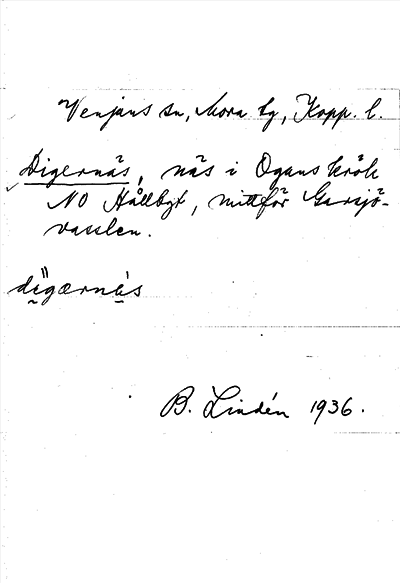 Venjans sn, Mora tg, Kopp. l.
Digernäs, näs i Ogans krök
NO Hållbyt, mittför Garsjö-
vasslen.
digærnäs
B. Lindén 1936.